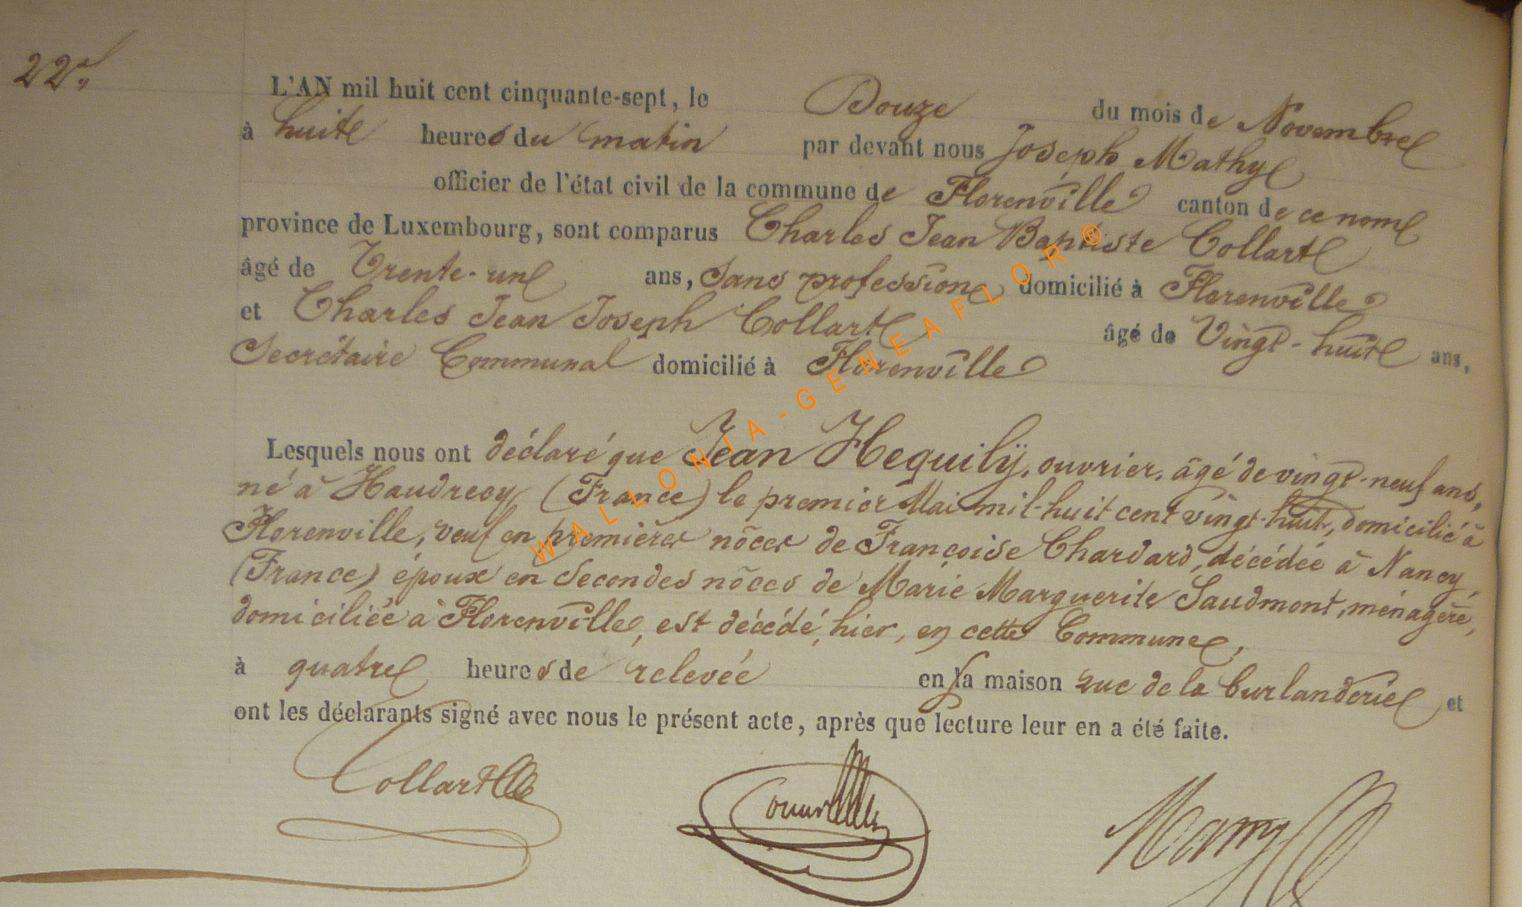 22.
L'AN mil huit cent cinquante-sept, le Douze du mois de Novembre
à huite heures du matin par devant nous Joseph Mathy
officier de l'état civil de la commune de Florenville canton de ce nom
province de Luxembourg, sont comparus Charles Jean Baptiste Collart
âgé de Trente-un ans, Sans profession domicilié à Florenville
et Charles Jean Joseph Collart âgé de Vingt-huit ans,
Secrétaire Communal domicilié à Florenville
Lesquels nous ont déclaré que Jean Hequily, ouvrier, âgé de vingt-neuf ans,
né à Haudrecy (France) le premier Mai mil-huit cent vingt-huit, domicilié à
Florenville, veuf en premières nôces de Françoise Chardard, décédée à Nancy,
(France) époux en Secondes nôces de Marie Marguerite Saudmont, ménagère,
domiciliée à Florenville, est décédé, hier, en cette Commune,
à quatre heures de relevée en sa maison rue de la Curlanderie et
ont les déclarants signé avec nous le présent acte, après que lecture leur en a été faite.
Collart
WALLONIA-GENEAFLOR ®